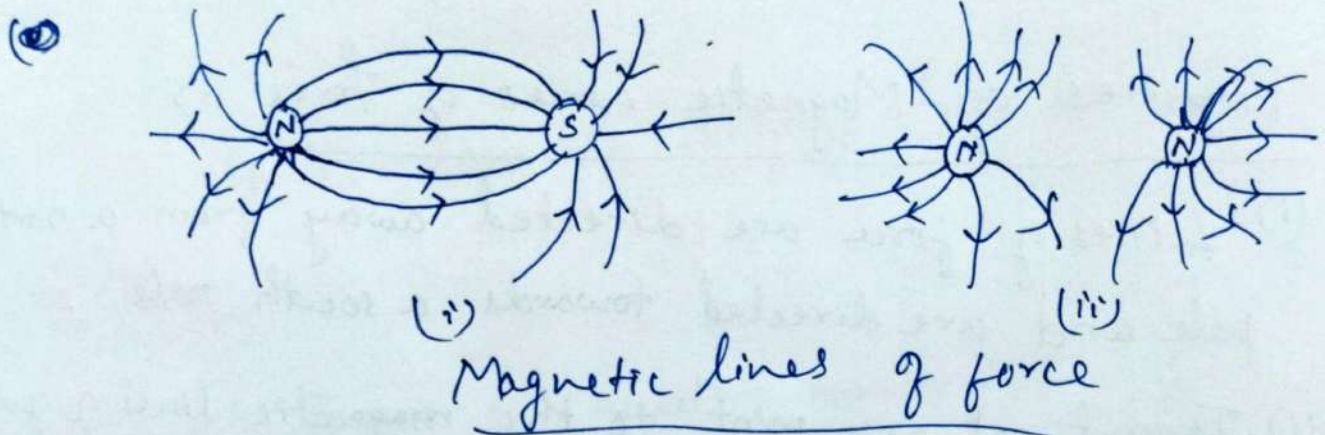 N S N N
(i) (ii)
Magnetic lines of force